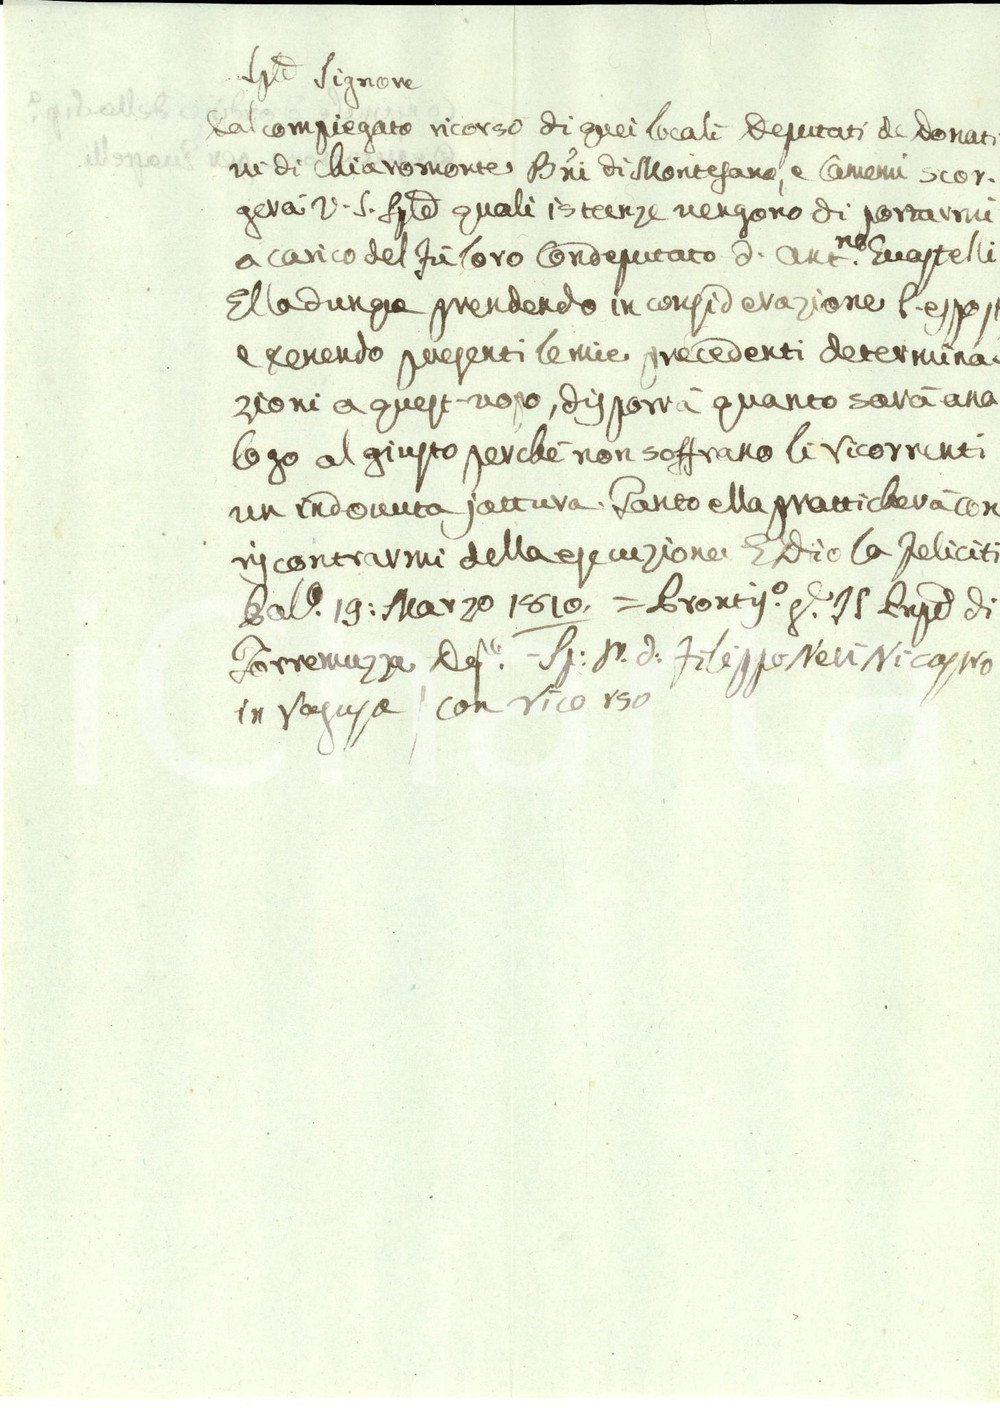 Sp.le Signore
Dal compiegato ricorso di quei locali Deputati de donati
vi di Chiaromonte B.ni di Montesano, e Camemi scor-
gerà V. S. Sp.le quali istanze vengono di portarmi
a carico del fù loro Condeputato d. Ant.no Guastelli
Ella dunque prendendo in considerazione l'espost
e tenendo presenti le mie precedenti determina
zioni a quest'uopo, disporrà quanto sarà ana
logo al giusto perchè non soffrano li ricorrenti
un indovuta jattura. Tanto ella pratticherà con
riscontrarmi della esecuzione E Dio la feliciti
Pal.o 19: Marzo 1810. = di
Torremuzza - Sp: S.r d: Filippo Neri Nicastro
in Ragusa / con ricorso